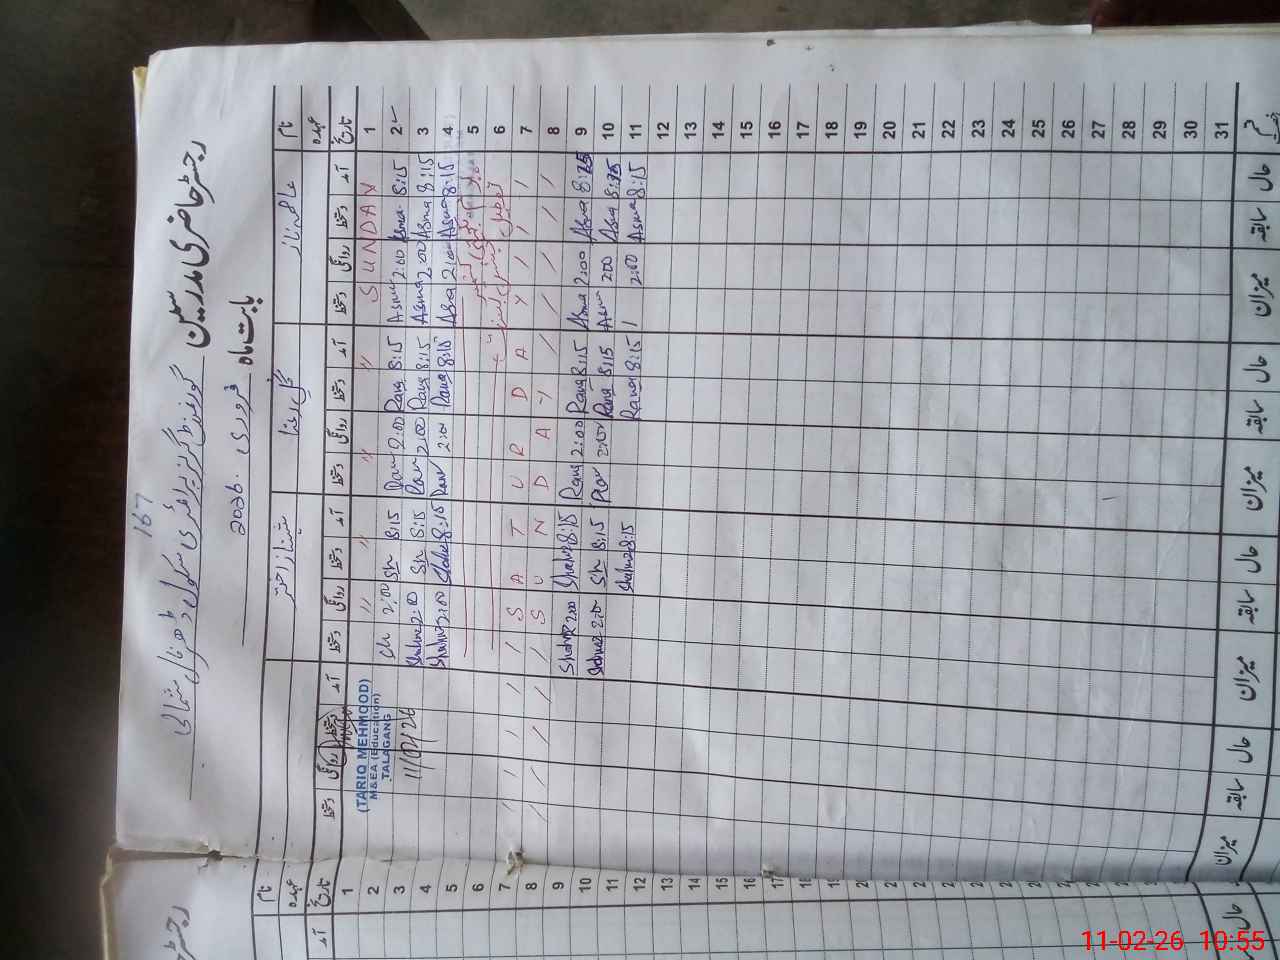 167
رجسٹر حاضری مدرسین گورنمنٹ گرلز پرائمری سکول ڈھرنال شمالی
بابت ماہ فروری 2026
نام عاصمہ ناز گل رعنا شہناز اختر
عہدہ
تاریخ آمد دستخط روانگی دستخط آمد دستخط روانگی دستخط آمد دستخط روانگی دستخط آمد دستخط روانگی دستخط
1 SUNDAY // // // //
2 8:15 Asma 2:00 Asma 8:15 Rana 2:00 Ran 8:15 Sh 2:00 Sh
3 8:15 Asma 2:00 Asma 8:15 Rana 2:00 Ran 8:15 Sh 2:00 Shahnaz
4 8:15 Asma 2:00 Asma 8:15 Rana 2:00 Rana 8:15 Shahnaz 2:00 Shahnaz
5
6 تعطیل
7 / / / Y A D R U T A S / / / / /
8 / / / / / Y A D N U S / / / / /
9 8:15 Asma 2:00 Asma 8:15 Rana 2:00 Rana 8:15 Shahnaz 2:00 Shahnaz
10 8:15 Asma 2:00 Asma 8:15 Rana 2:00 Rana 8:15 Sh 2:00 Shahnaz
11 8:15 Asma 2:00 / 8:15 Rana 8:15 Shahnaz
12
13
14
15
16
17
18
19
20
21
22
23
24
25
26
27
28
29
30
31
حال سابقہ میزان حال سابقہ میزان حال سابقہ میزان حال سابقہ میزان
(TARIQ MEHMOOD)
M&EA (Education)
TALAGANG
11/02/26
نام
عہدہ
تاریخ آمد
1
2
3
4
5
6
7
8
9
10
11
12
13
14
15
16
17
حال
11-02-26 10:55